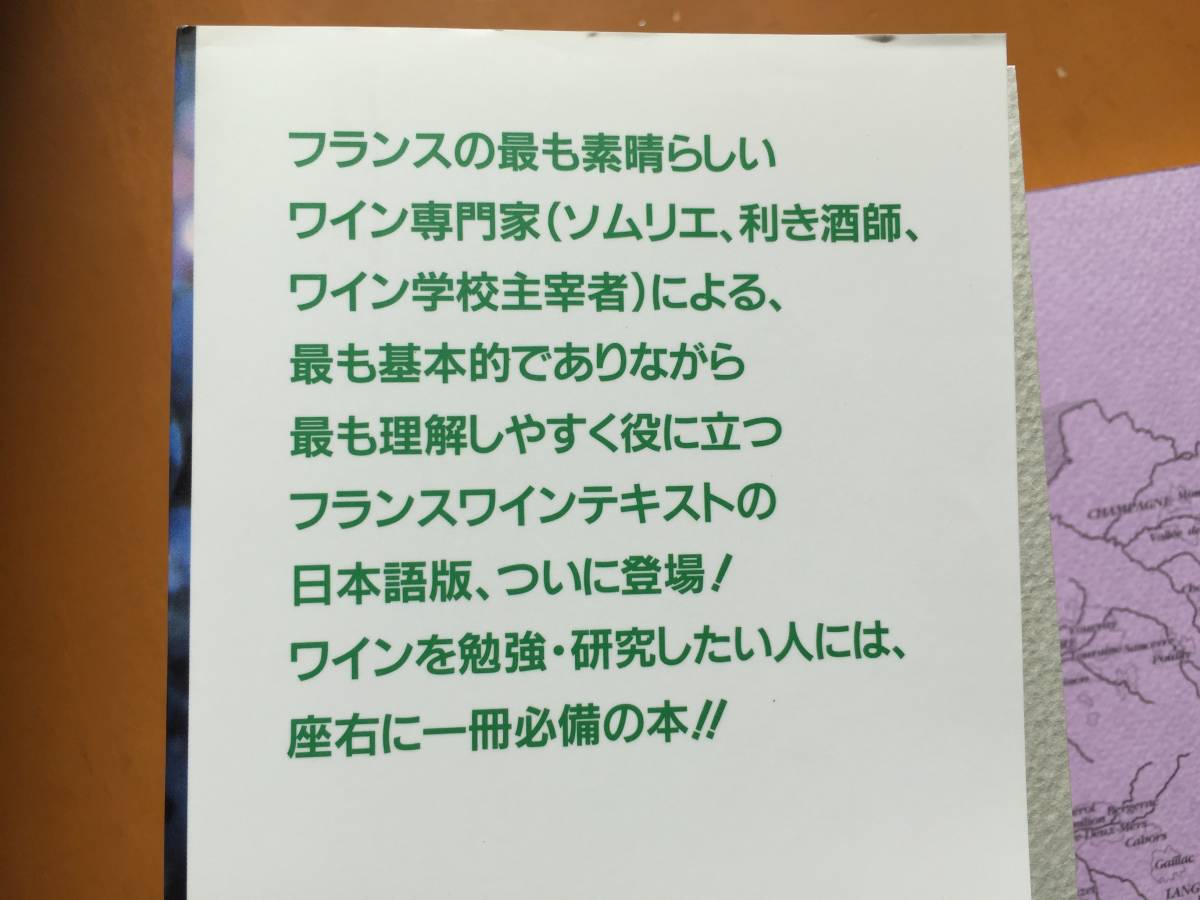 フランスの最も素晴らしい
ワイン専門家(ソムリエ、利き酒師、
ワイン学校主宰者)による、
最も基本的でありながら
最も理解しやすく役に立つ
フランスワインテキストの
日本語版、ついに登場!
ワインを勉強・研究したい人には、
座右に一冊必備の本!!
CHAMPAGNE
Vallée de
Sancerre
Pouilly
Bergerac
-Deux-Mers
Cahors
Gaillac
LANG